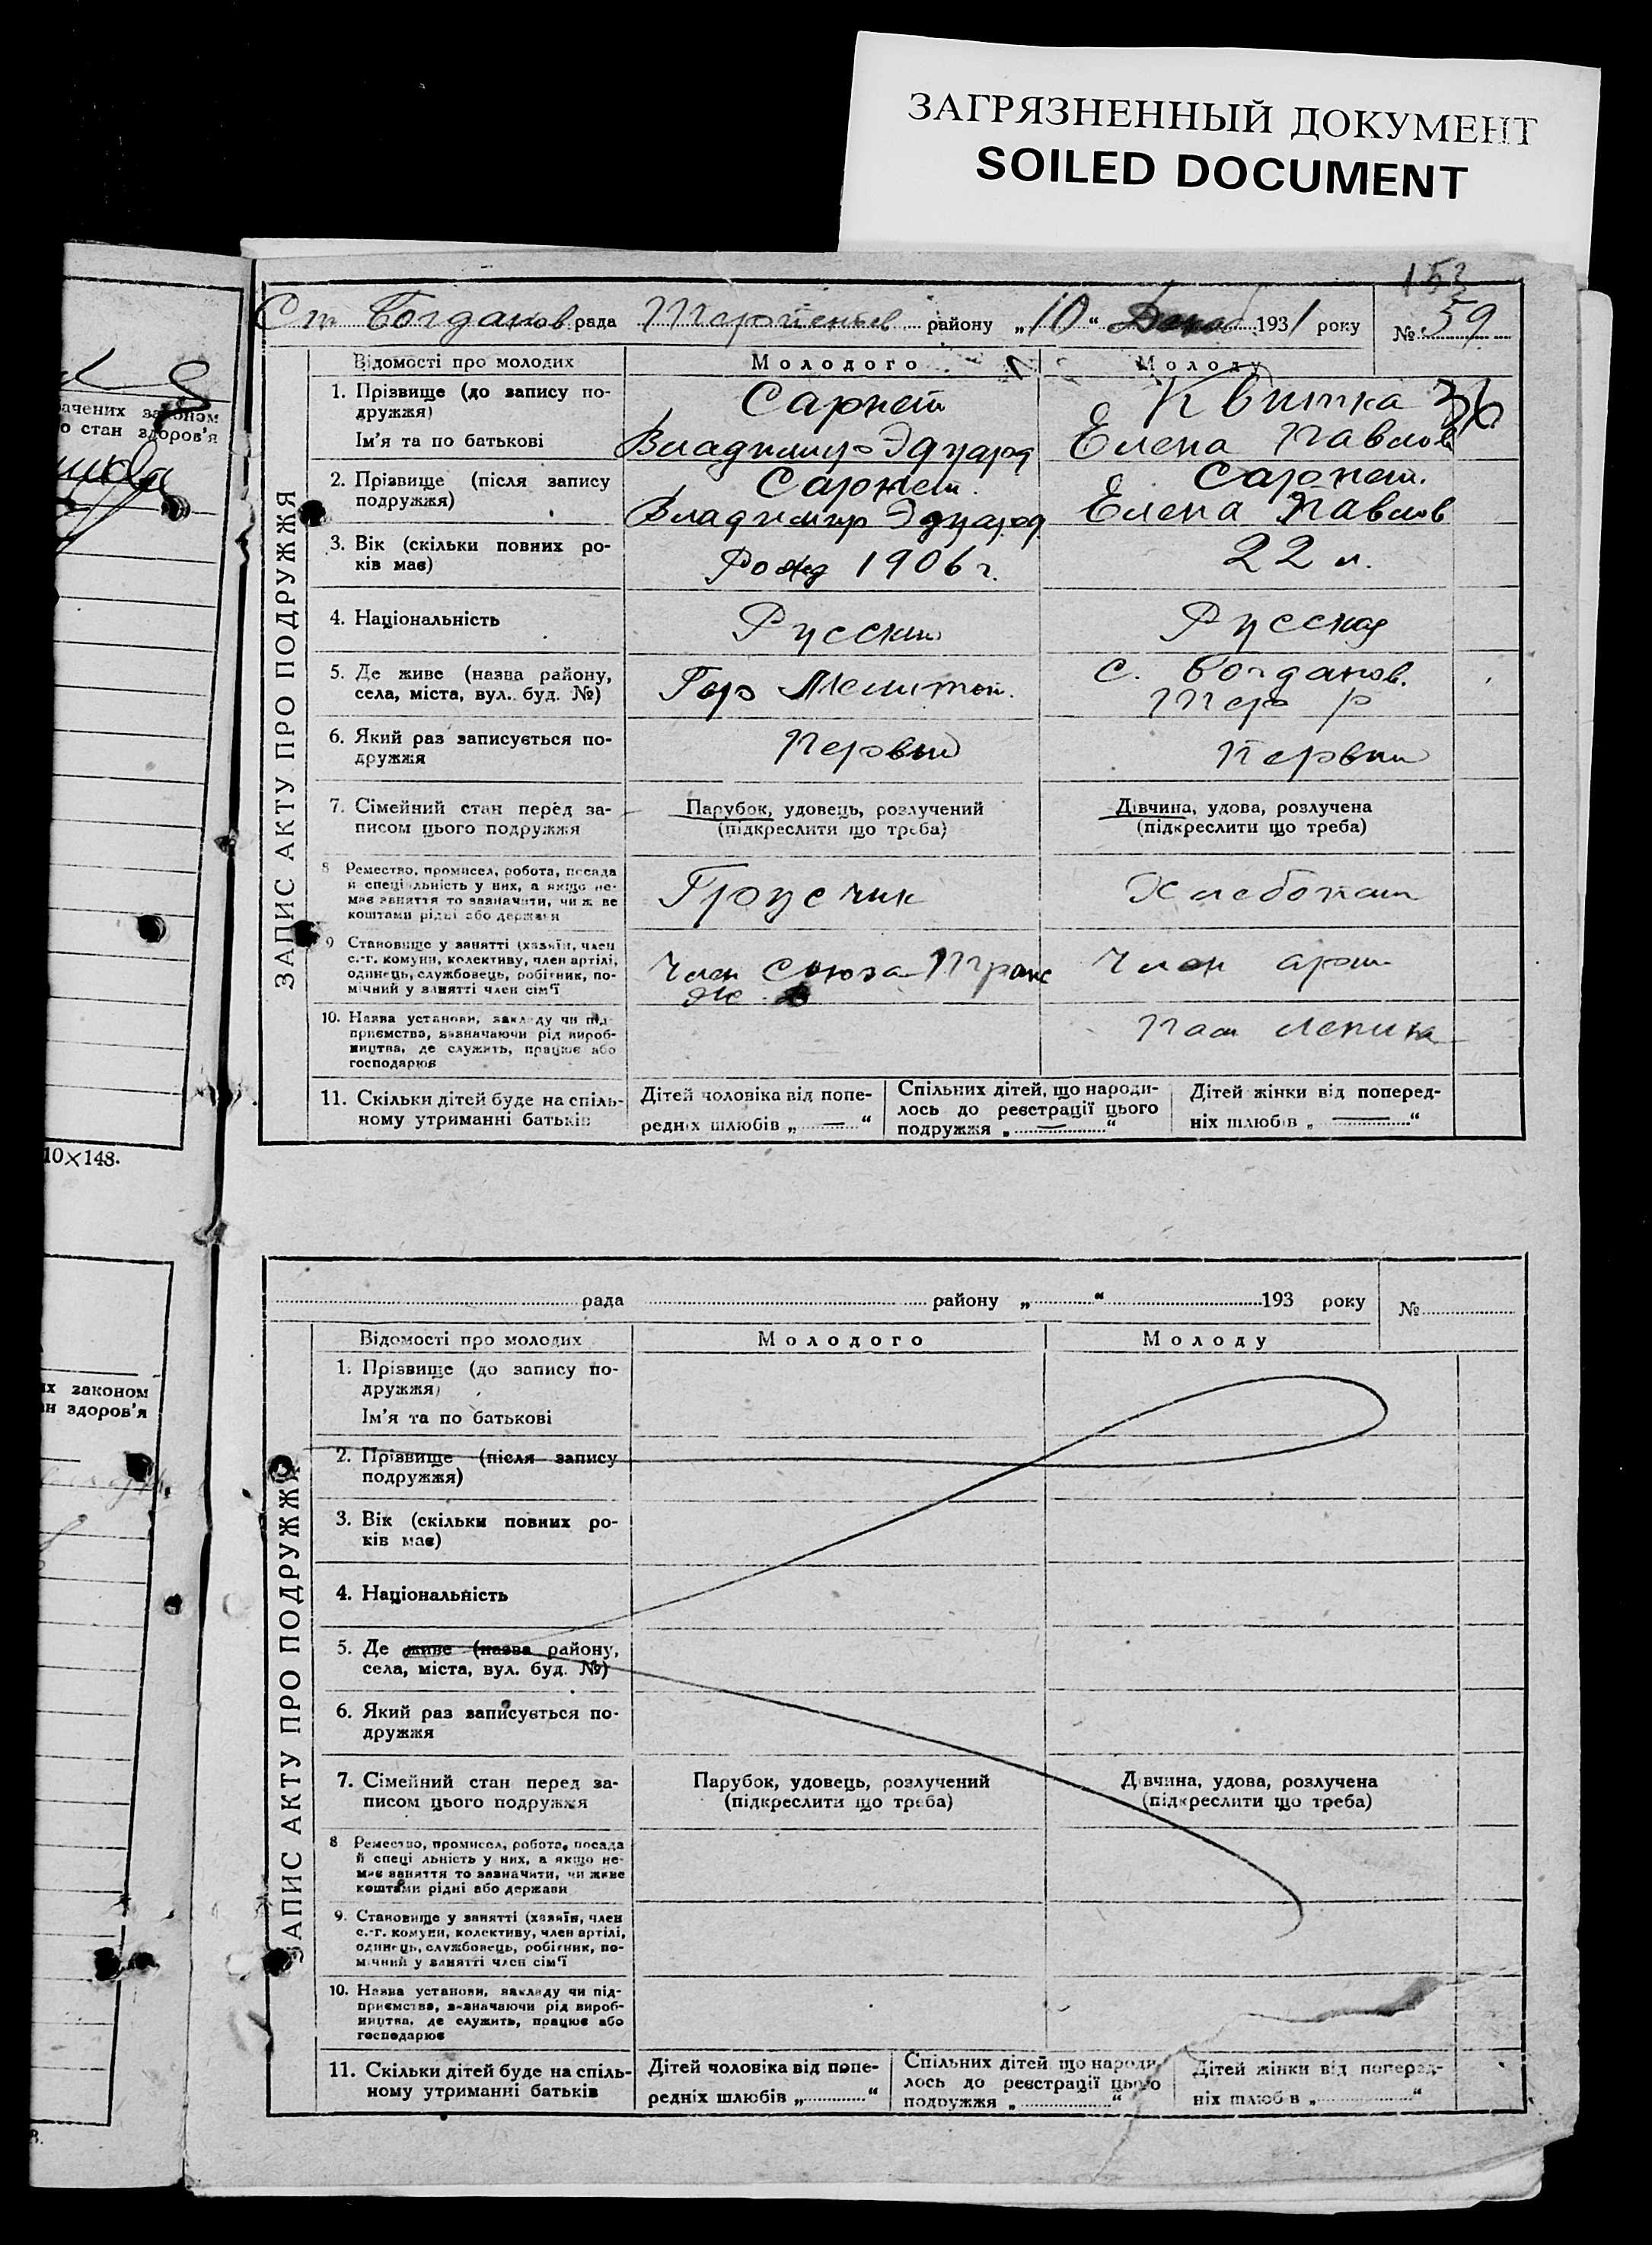 ЗАГРЯЗНЕННЫЙ ДОКУМЕНТ
SOILED DOCUMENT
ачених законом
о стан здоров'я
10×148.
их законом
ан здоров'я
153
Ст Богданов рада Терпеньев району „10“ Декаб 1931 року № 59
ЗАПИС АКТУ ПРО ПОДРУЖЖЯ
Відомості про молодих Молодого Молоду
1. Прізвище (до запису по- Сарнет Квитка 36
дружжя)
Ім'я та по батькові Владимир Эдуард Елена Павлов
2. Прізвище (після запису Сарнет. Сарнет.
подружжя) Владимир Эдуард Елена Павлов
3. Вік (скільки повних ро- Рожд 1906 г. 22 л.
ків має)
4. Національність Русский Русская
5. Де живе (назва району, Гор Мелитоп. с. Богданов.
села, міста, вул. буд. №) Тер р
6. Який раз записується по- Первый Первый
дружжя
7. Сімейний стан перед за- Парубок, удовець, розлучений Дівчина, удова, розлучена
писом цього подружжя (підкреслити що треба) (підкреслити що треба)
8 Ремество, промисел, робота, посада
й спеціяльність у них, а якщо не- Грузчик Хлебопаш
має заняття то зазначити, чи ж ве
коштами рідні або держави
9 Становище у занятті (хазяїн, член
с.-г. комуни, колективу, член артілі, Член союза Транс Член арт
одинець, службовець, робітник, по-
мічний у занятті член сім'ї
10. Назва установи, закладу чи під-
приємства, зазначаючи рід вироб- Ленина
ництва, де служить, працює або
господарює
11. Скільки дітей буде на спіль- Дітей чоловіка від попе- Спільних дітей, що народи- Дітей жінки від поперед-
ному утриманні батьків редніх шлюбів „—“ лось до реєстрації цього ніх шлюбів „—“
подружжя „—“
рада району „ “ 193 року №
ЗАПИС АКТУ ПРО ПОДРУЖЖЯ
Відомості про молодих Молодого Молоду
1. Прізвище (до запису по-
дружжя)
Ім'я та по батькові
2. Прізвище (після запису
подружжя)
3. Вік (скільки повних ро-
ків має)
4. Національність
5. Де живе (назва району,
села, міста, вул. буд. №)
6. Який раз записується по-
дружжя
7. Сімейний стан перед за- Парубок, удовець, розлучений Дівчина, удова, розлучена
писом цього подружжя (підкреслити що треба) (підкреслити що треба)
8 Ремество, промисел, робота, посада
й спеціяльність у них, а якщо не-
має заняття то зазначити, чи живе
коштами рідні або держави
9. Становище у занятті (хазяїн, член
с.-г. комуни, колективу, член артілі,
одинець, службовець, робітник, по-
мічний у занятті член сім'ї
10. Назва установи, закладу чи під-
приємства, зазначаючи рід вироб-
ництва, де служить, працює або
господарює
11. Скільки дітей буде на спіль- Дітей чоловіка від попе- Спільних дітей що народи- Дітей жінки від поперед-
ному утриманні батьків редніх шлюбів „ “ лось до реєстрації цього ніх шлюбів „ “
подружжя „ “